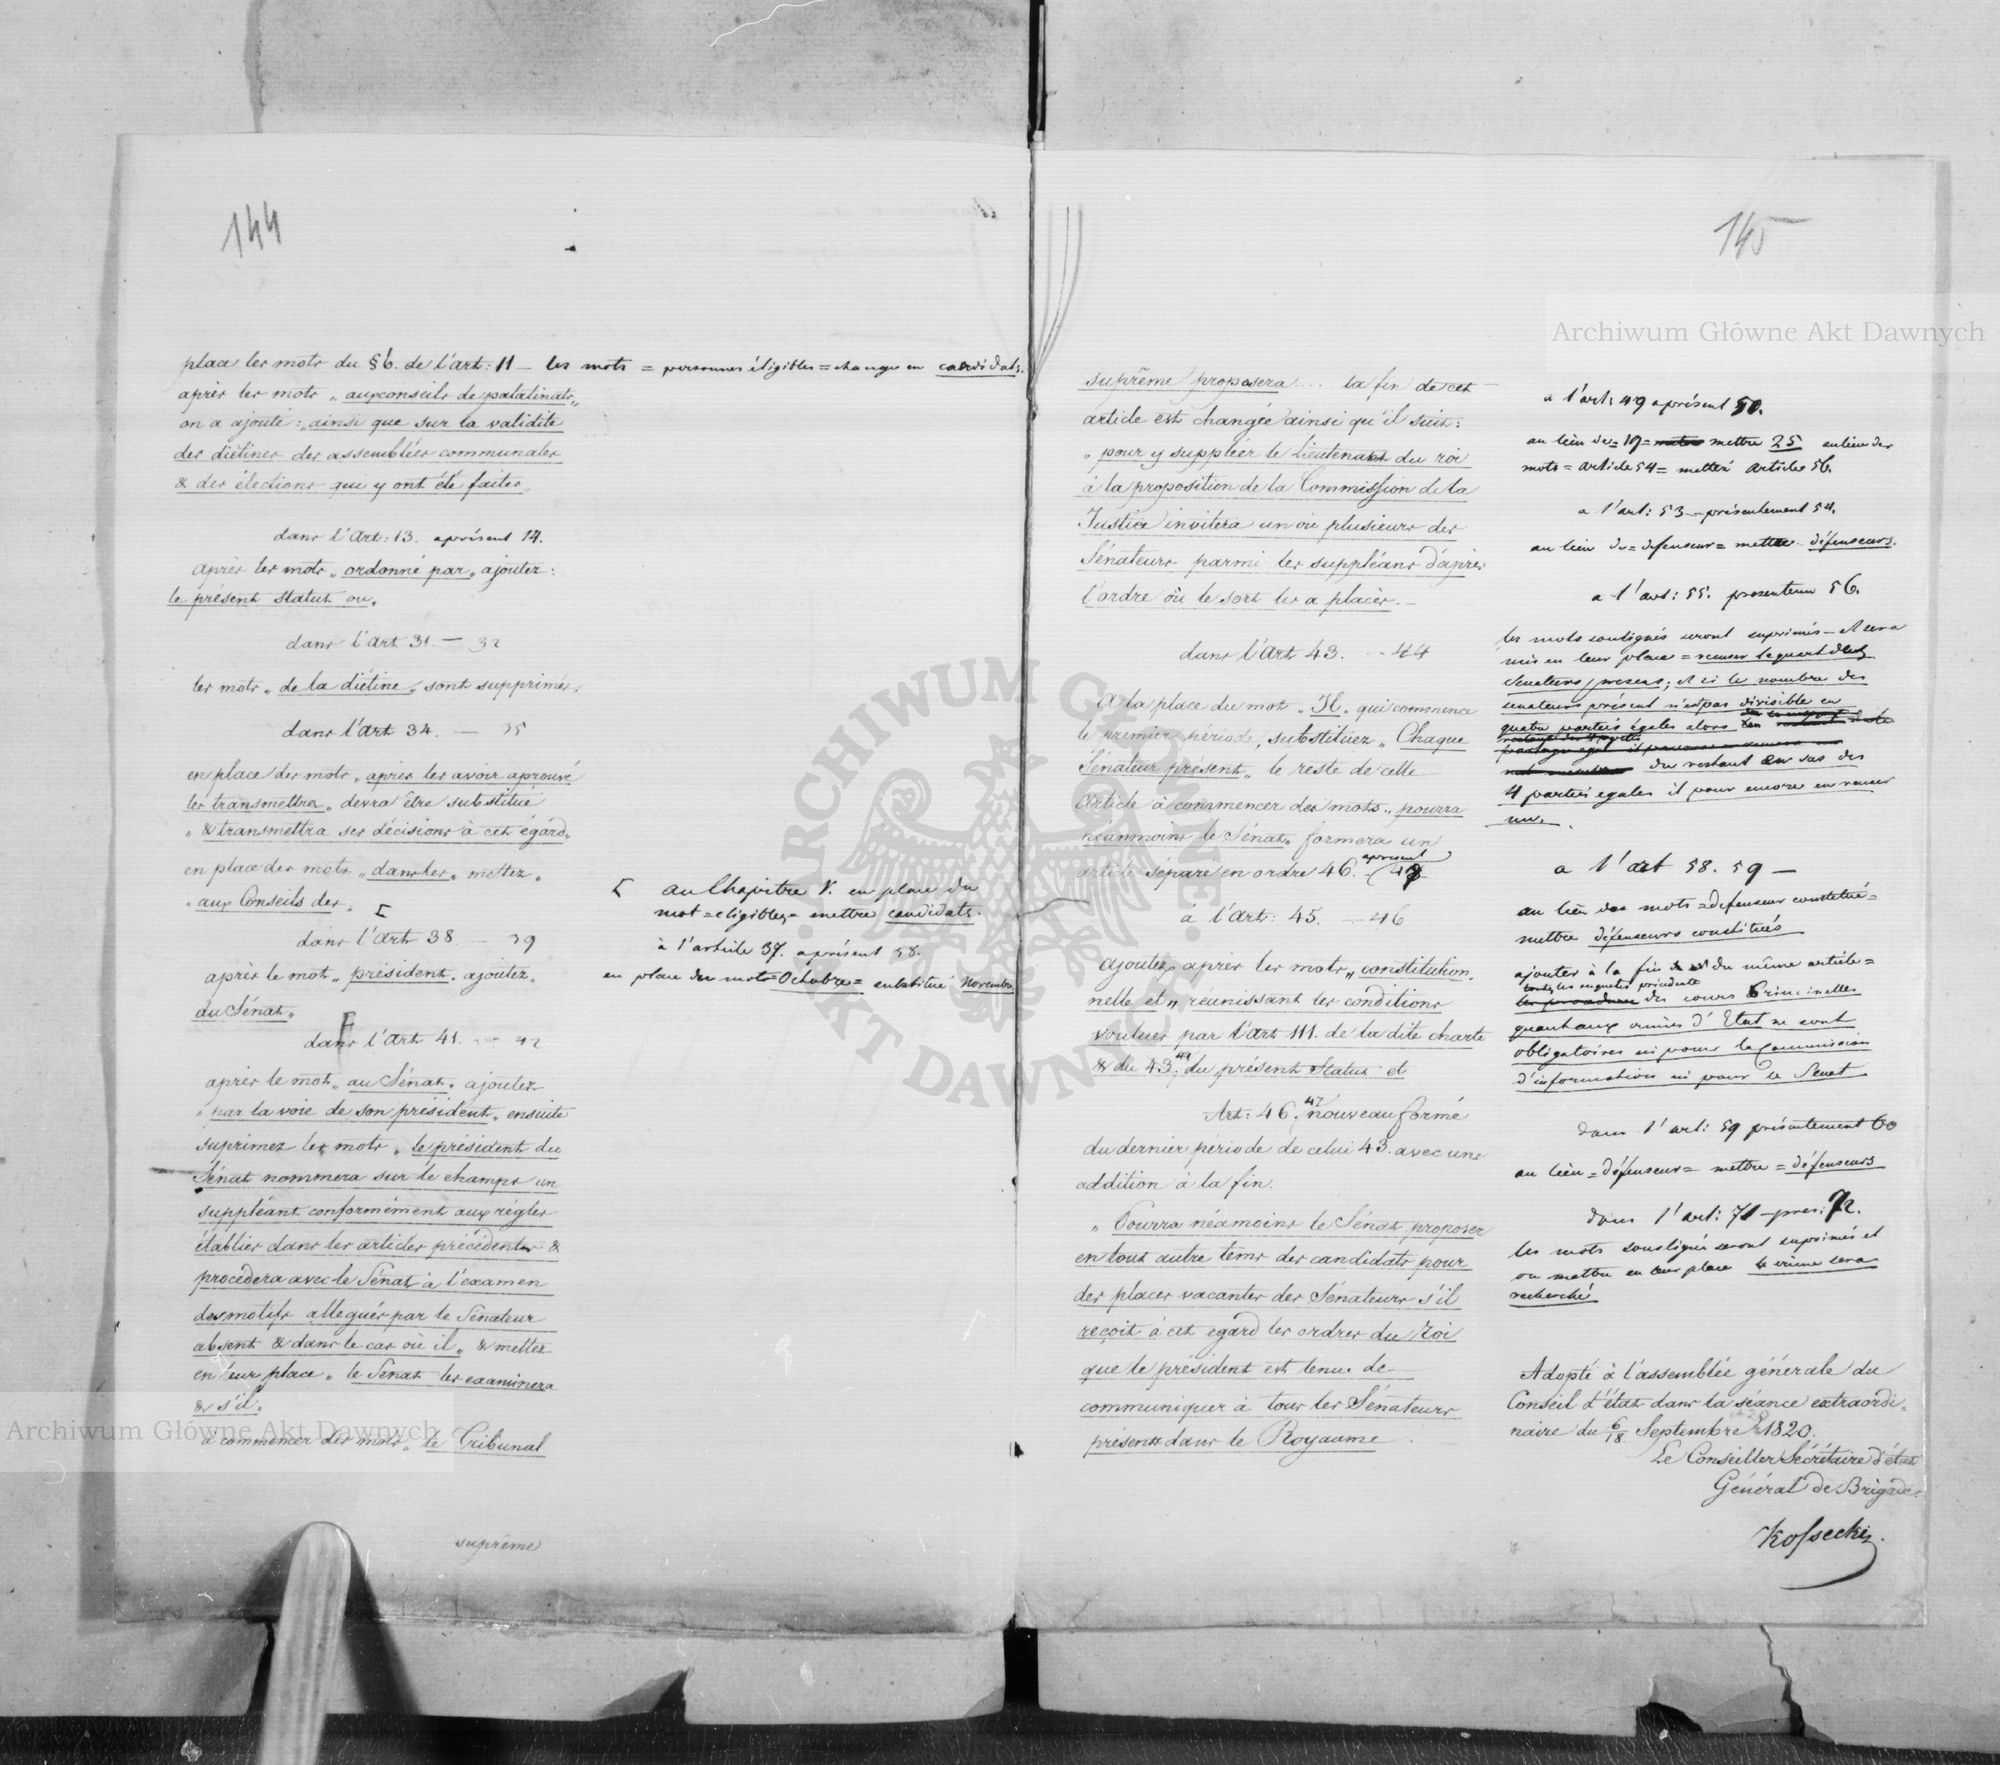 144
place les mots du § 6. de l'art: 11 — les mots = personnes éligibles = change en candidats.
après les mots „ aux conseils de palatinats „
on a ajouté: „ ainsi que sur la validité
des diétines des assemblées communales
& des élections qui y ont été faites „
dans l'Art: 13. aprésent 14.
après les mots „ ordonné par „ ajoutez:
le présent Statut ou „
dans l'Art 31. — 32
les mots „ de la diétine „ sont supprimés.
dans l'Art 34. — 35
en place des mots „ après les avoir aprouvé
les transmettra „ devra être substitué
„ & transmettra ses décisions à cet égard „
en place des mots „ dans les „ mettez „
„ aux Conseils des „ [
dans l'Art 38 — 39
après le mot „ président „ ajoutez „
du Sénat „
dans l'Art 41. — 42
après le mot „ au Sénat „ ajoutez
„ par la voie de son président „ ensuite
suprimez les mots „ le président du
Sénat nommera sur le champs un
suppléant conformément aux règles
établies dans les articles précédents &
procédera avec le Sénat à l'examen
des motifs allegués par le Sénateur
absent & dans le cas où il „ & mettez
en leur place „ le Sénat les examinera
& s'il „
à commencer des mots „ le Tribunal
suprême
[ au Chapitre V. en place du
mot = eligibles = mettre candidats.
à l'article 37. aprésent 38.
en place du mot = Octobre = substitué Novembre
145
suprême proposera .... la fin de cet
article est changée ainsi qu'il suit:
„ pour y suppléer le Lieutenant du roi
à la proposition de la Commission de la
Justice invitera un ou plusieurs des
Sénateurs parmi les suppléans d'après
l'ordre où le sort les a placés. —
dans l'Art 43. — 44
A la place du mot „ Il „ qui commence
le premier période, substituez „ Chaque
Sénateur présent „ le reste de cette
article à commencer des mots „ pourra
néanmoins le Sénat „ formera un
article séparé en ordre 46. aprésent 47
à l'Art: 45. — 46
ajoutez après les mots „ constitution-
nelle et „ réunissant les conditions
voulues par l'Art 111. de la dite charte
& du 43, 44 du présent Statut et
Art: 46. 47 nouveau formé
du dernier période de celui 43. avec une
addition à la fin.
„ Pourra néamoins le Sénat proposer
en tout autre tems des candidats pour
des places vacantes des Sénateurs s'il
reçoit à cet egard les ordres du Roi
que le président est tenu de
communiquer à tous les Sénateurs
présents dans le Royaume
a l'art: 49 aprésent 50.
au lieu de = 19 = mettre 25 au lieu des
mots = article 54 = mettre article 56.
a l'art: 53 — présentement 54.
au lieu de = defenseur = mettre défenseurs.
a l'art: 55. presentem 56.
les mots soulignés seront suprimés — et sera
mis en leur place = recuser le quart des
Senateurs presens; et si le nombre des
senateurs présent n'est pas divisible en
quatre parties égales alors
du restant en sus des
4 parties egales il pourra encore en recuser
un.
a l'art 58. 59 —
au lieu des mots = defenseur constitué =
mettre défenseurs constitués
ajouter à la fin du même article =
toutes les enquetes précédente
des cours Criminelles
quant aux crimes d'Etat ne sont
obligatoires ni pour la Commission
d'information ni pour le Senat
dans l'art: 59 présentement 60
au lieu = défenseur = mettre = défenseurs
dans l'art: 71 — pres: 72.
les mots soulignés seront suprimés et
on mettra en leur place le crime sera
recherché
Adopté à l'assemblée générale du
Conseil d'état dans la séance extraordi-
naire du 6/18 Septembre 1820.
Le Conseiller Sécrétaire d'état
Général de Brigade.
Kossecki
Archiwum Główne Akt Dawnych
Archiwum Główne Akt Dawnych
ARCHIWUM GŁÓWNE AKT DAWNYCH